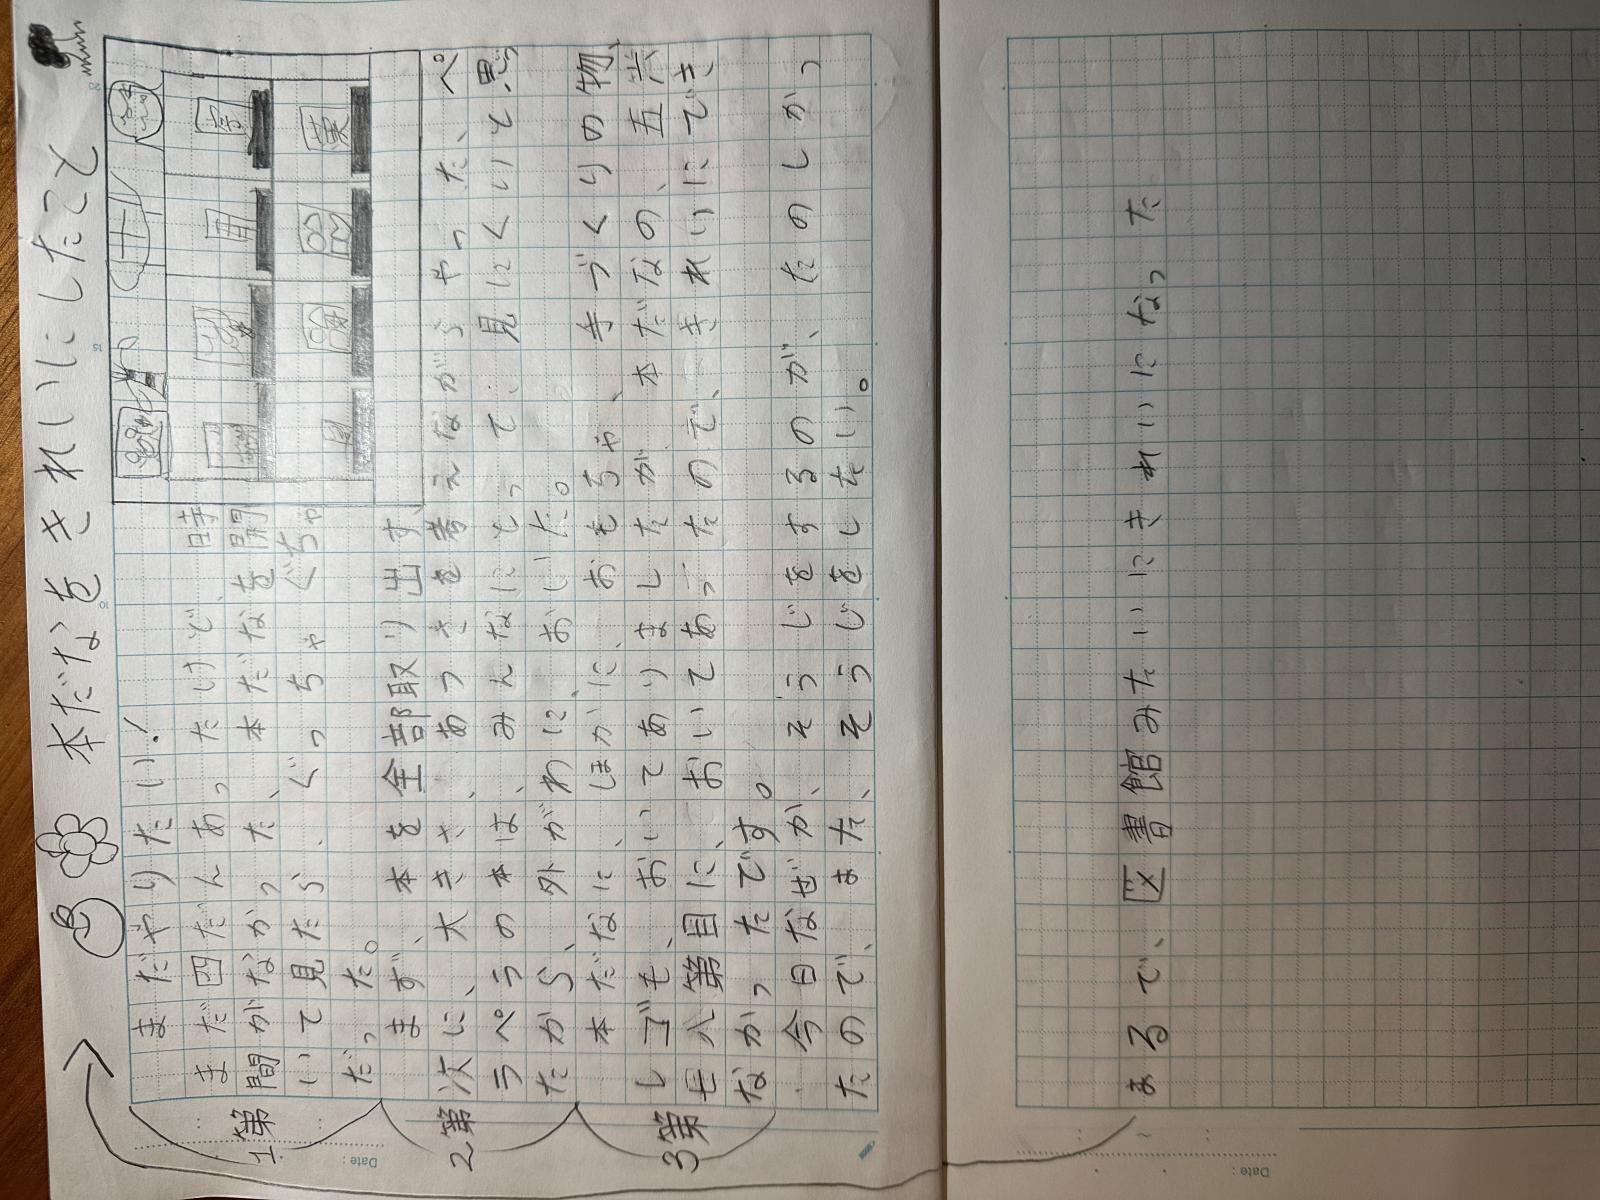 本だなをきれいにしたこと
まだやりたい!
まだ四だんあっただけで、時
間がなかった、本だなを開
いて見たら、ぐっちゃぐちゃ
だった。
まず、本を全部取り出す
次に、大きさ、あつさを考えながらやった、ペ
ラペラの本は、みんなにとって、見にくいと思っ
たから、外がわにおいた。
本だなに、ほかに、おもちゃ、手づくりの物、
しゴも、おいてありましたが、本だなの、五六
七八第目に、おいてあったので、きれいにでき
なかったです。
今日なぜか、そうじをするのが、たのしかっ
たので、また、そうじをしたい。
1第
2第
3第
Date :
まるで、区書館みたいににきれいになった
Date :